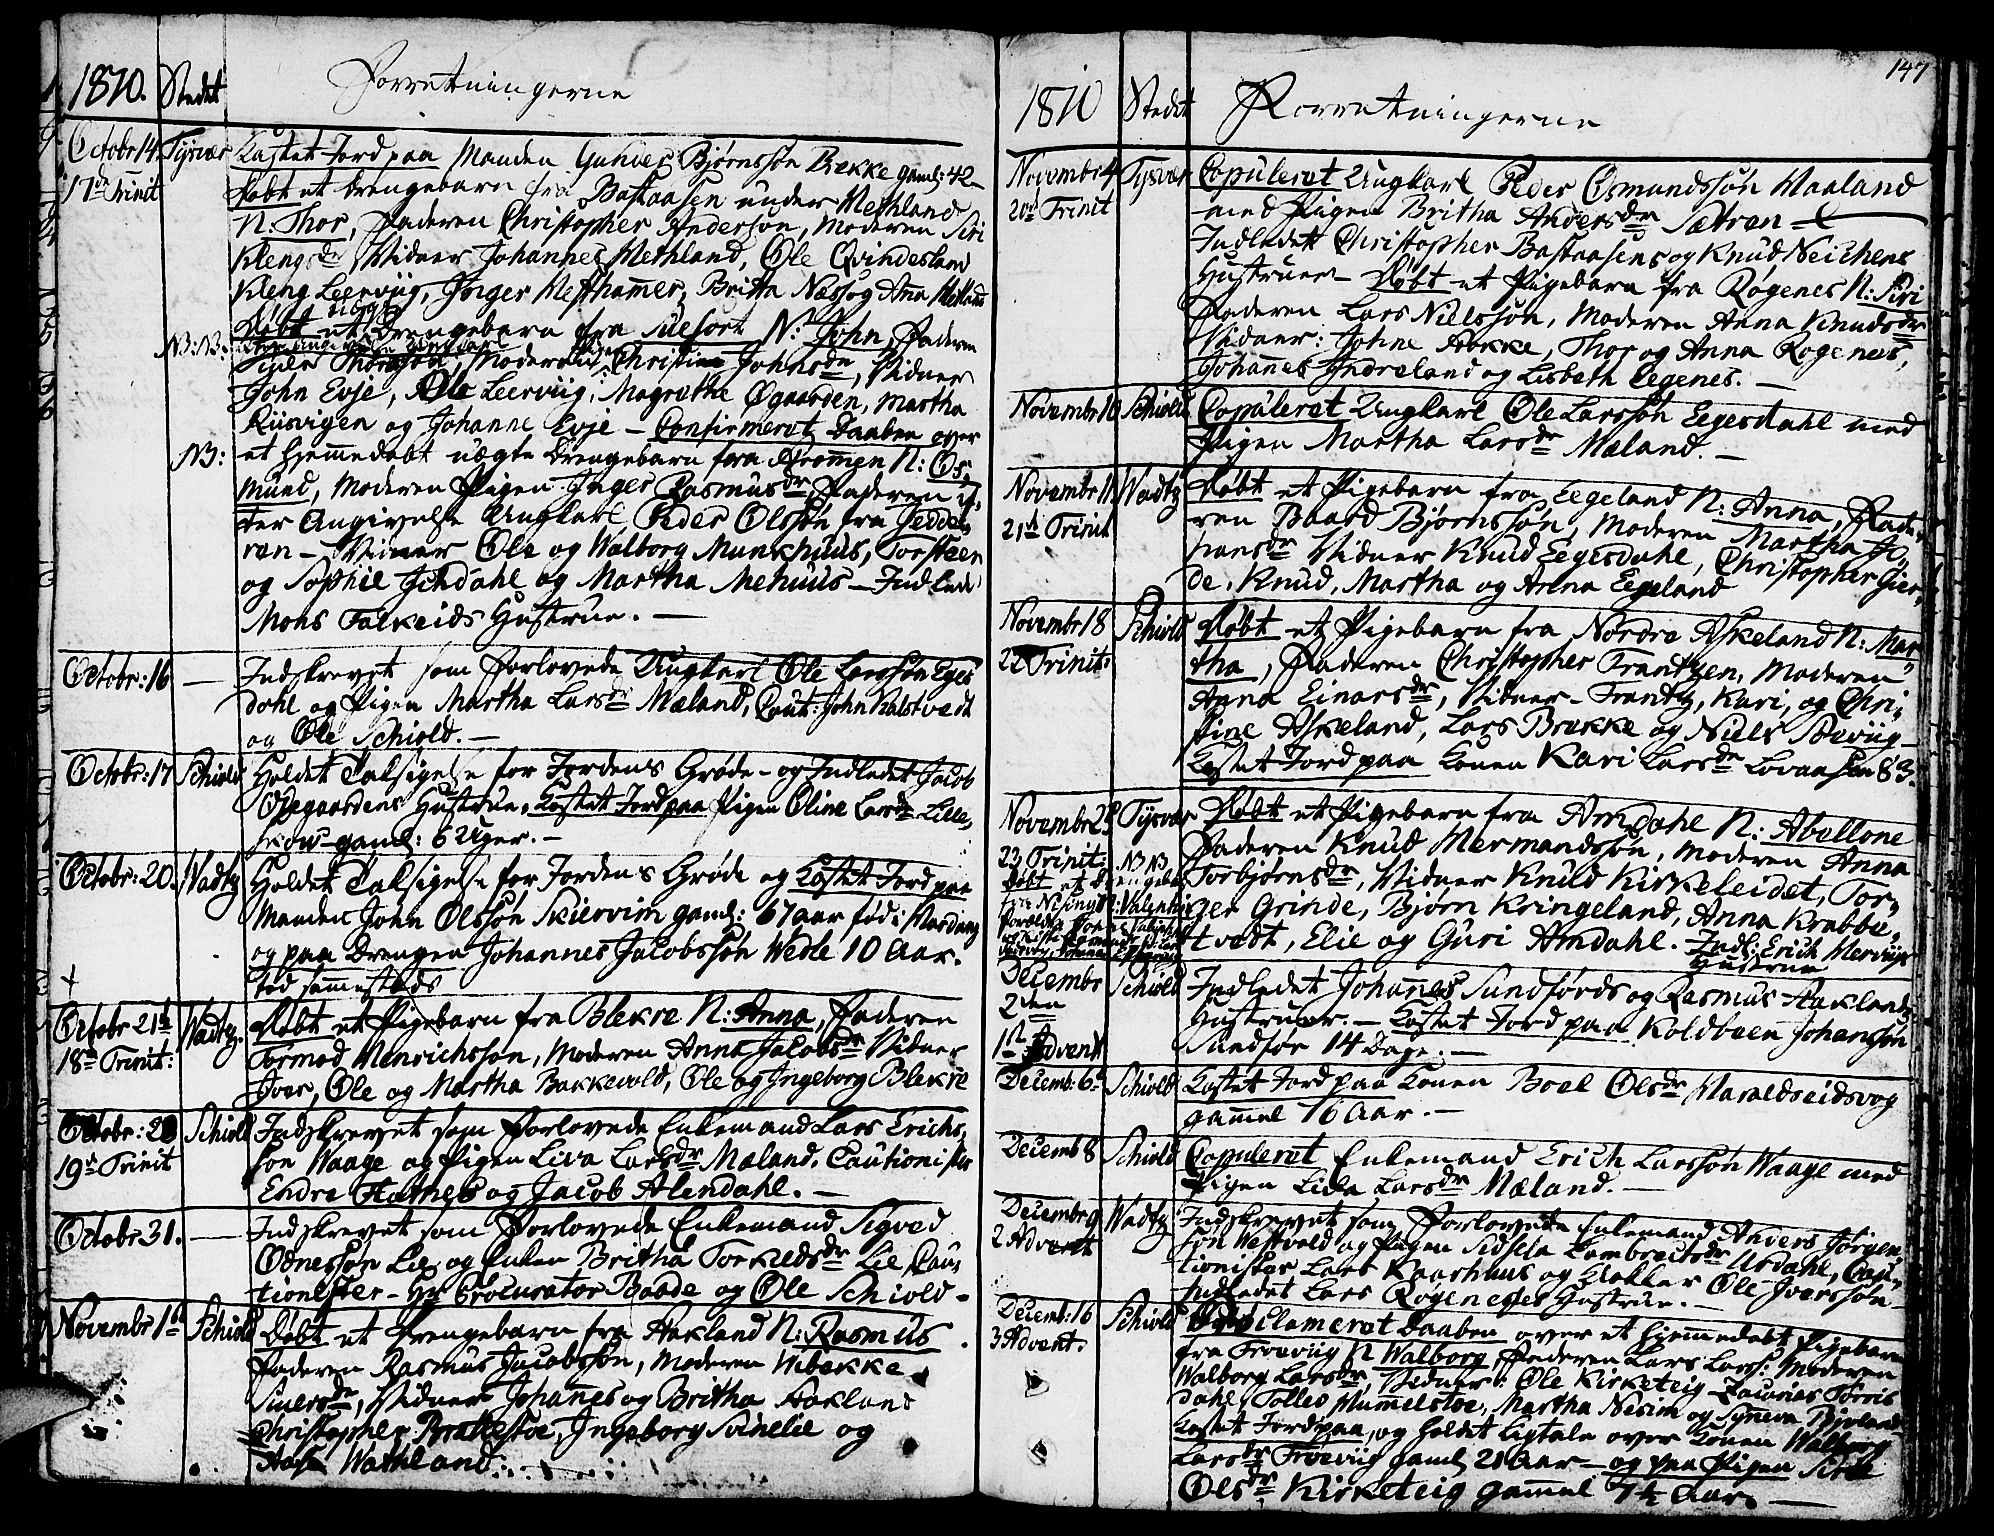 1810. Stedet Forretningerne
Octobr 14. Tysvær Kastet Jord paa Manden Bjørnssøn Bekke gaml: 42
17de Trinit Døbt et Drengebarn fra Bastaasen under Methland
N. Thor, Faderen Christopher Anderson, Moderen Siri
Klengsdr Vidner Johannes Methland, Ole Qvindesland
Kleng Leerviig, Inger Britta Næss og Anna
Døbt et Drengebarn fra N: John, Faderen
N:B: Moderen Christine Johnsdr, Vidner
John Evje, Ole Leerviig, Magrethe Øgaarden, Martha
Riisvigen og Johanne Evje – Confirmeret Daaben over
NB: et Hjemmedøbt uægte Drengebarn fra N: Os-
mund, Moderen Pigen Inger Rasmusdr, Faderen ef-
ter Angivelse Ungkarl Peder Olssøn fra
ren – Vidner Ole og Walborg Munkhuus, Torsteen
og Sophie og Martha Mehuus – Indledt
Mons Falkeids Hustrue. –
Octobr: 16 – Indskrevet som Forlovede Ungkarl Ole Larssøn Eges
dahl og Pigen Martha Larsdr Mæland, Caut: John Kalstvedt
og Ole Schiold. –
Octobr: 17 Schiold Holdet Taksigelse for Jordens Grøde – og Indledet Jacob
Øfregaardens Hustrue, Kastet Jord paa Pigen Oline Larsdr Lille-
skow gaml: 6 Uger. –
Octobr: 20. Wadtz Holdet Taksigelse for Jordens Grøde og Kastet Jord paa
Manden John Olssøn Skiervim gaml: 67 aar fød i Hardang
og paa Drengen Johannes Jacobssøn Wedle 10 Aar.
fød sammesteds
Octobr 21de Wadtz Døbt et Pigebarn fra Blekre N: Anna, Faderen
18de Trinit: Tormod Henrichssøn, Moderen Anna Jacobsdr Vidner
Iver, Ole og Martha Bakkevold, Ole og Ingeborg Blekre
Octobr: 28 Schiold Indskrevet som Forlovede Enkemand Lars Erichs-
19de Trinit søn Waage og Pigen Liva Larsdr Mæland. Cautionister
Endre og Jacob Alendahl. –
Octobr 31. – Indskrevet som Forlovede Enkemand Sigved
Odnessøn Lie og Enken Britha Torkildsdr Lie, Cau-
tionister – Hr Procurator Baade og Ole Schiold –
Novembr 1ste Schiold Døbt et Drengebarn fra Aakland N: Rasmus
Faderen Rasmus Jacobssøn, Moderen Wibekke
Siversdr, Vidner Johannes og Britha Aakland
Christopher Ingeborg Svinelie og
Wathland.
147
1810 Stedet Forretningerne
Novembr 4 Tysvær Copuleret Ungkarl Peder Osmundssøn Haaland
20de Trinit med Pigen Britha Andersdr Sætren –
Indledet Christopher Bastaasens og Knud
Hustruer – Døbt et Pigebarn fra Røgenes N: Siri
Faderen Lars Nielssøn, Moderen Anna Knudsdr
Vidner: Johne Thor og Anna Rogenes,
Johannes Indreland og Lisbeth Eegenes. –
Novembr 10 Schiold Copuleret Ungkarl Ole Larssøn Eegesdahl med
Pigen Martha Larsdr Mæland. –
Novembr 11 Wadtz Døbt et Pigebarn fra Eegeland N: Anna, Fade-
21de Trinit ren Baard Bjørnssøn, Moderen Martha Jo-
hansdr Vidner Knud Eegesdahl, Christopher Gier-
de, Knud, Martha og Anna Eegeland
Novembr 18 Schiold Døbt et Pigebarn fra Nordre Askeland N: Mar-
22 Trinit: tha, Faderen Christopher Frantzen, Moderen
Anna Einarsdr, Vidner – Frantz, Kari, og Chri-
stine Askeland, Lars Brekke og Niels
Kastet Jord paa Konen Kari Larsdr Lovaasen 83.
Novembr 25 Tysvær Døbt et Pigebarn fra Amdahl N: Abellone
23 Trinit: NB Faderen Knud Hermandssøn, Moderen Anna
Døbt et Drengebarn Torbjørnsdr, Vidner Knud Kirkeleidet, Tor-
ger Grinde, Bjørn Kringeland, Anna Krabbe-
tvedt, Elie og Guri Amdahl. Indl: Erich Herviigs
Hustrue
Decembr Schiold Indledet Johannes Sundførds og Rasmus Aaklands
2den Hustruer. – Kastet Jord paa Koldbeen Johanssøn
1ste Advent Sundfør 14 Dage. –
Decemb: 6te Schiold Kastet Jord paa Konen Boel Olsdr Haraldseidsvog
gammel 76 Aar. –
Decemb 8 Schiold Copuleret Enkemand Erich Larssøn Waage med
Pigen Liva Larsdr Mæland. –
Decembr 9 Wadtz Indskrevet som Forlovede Enkemand Anders Jørgen
2 Advent søn Westvold og Pigen Sidsela Lambrechtsdr Urdahl, Cau-
tionister Lars Kaarhuus og Klokker Ole Iverssøn –
Indledet Lars Rogenesses Hustrue. –
Decemb: 16 Schiold Proclameret Daaben over et hjemmedøbt Pigebarn
3 Advent. fra Troeviig N Walborg, Faderen Lars Larss: Moderen
Walborg Larsdr, Vidner: Ole Kirketeig Zacharias Torris
dahl, Tolled Hummelstoe, Martha Nesim og Synneva
Kastet Jord paa, og holdet Ligtale over Konen Walborg
Larsdr Troeviig gaml 21 Aar – og paa Pigen Siri
Olsdr Kirketeig gammel 7½ Aar –